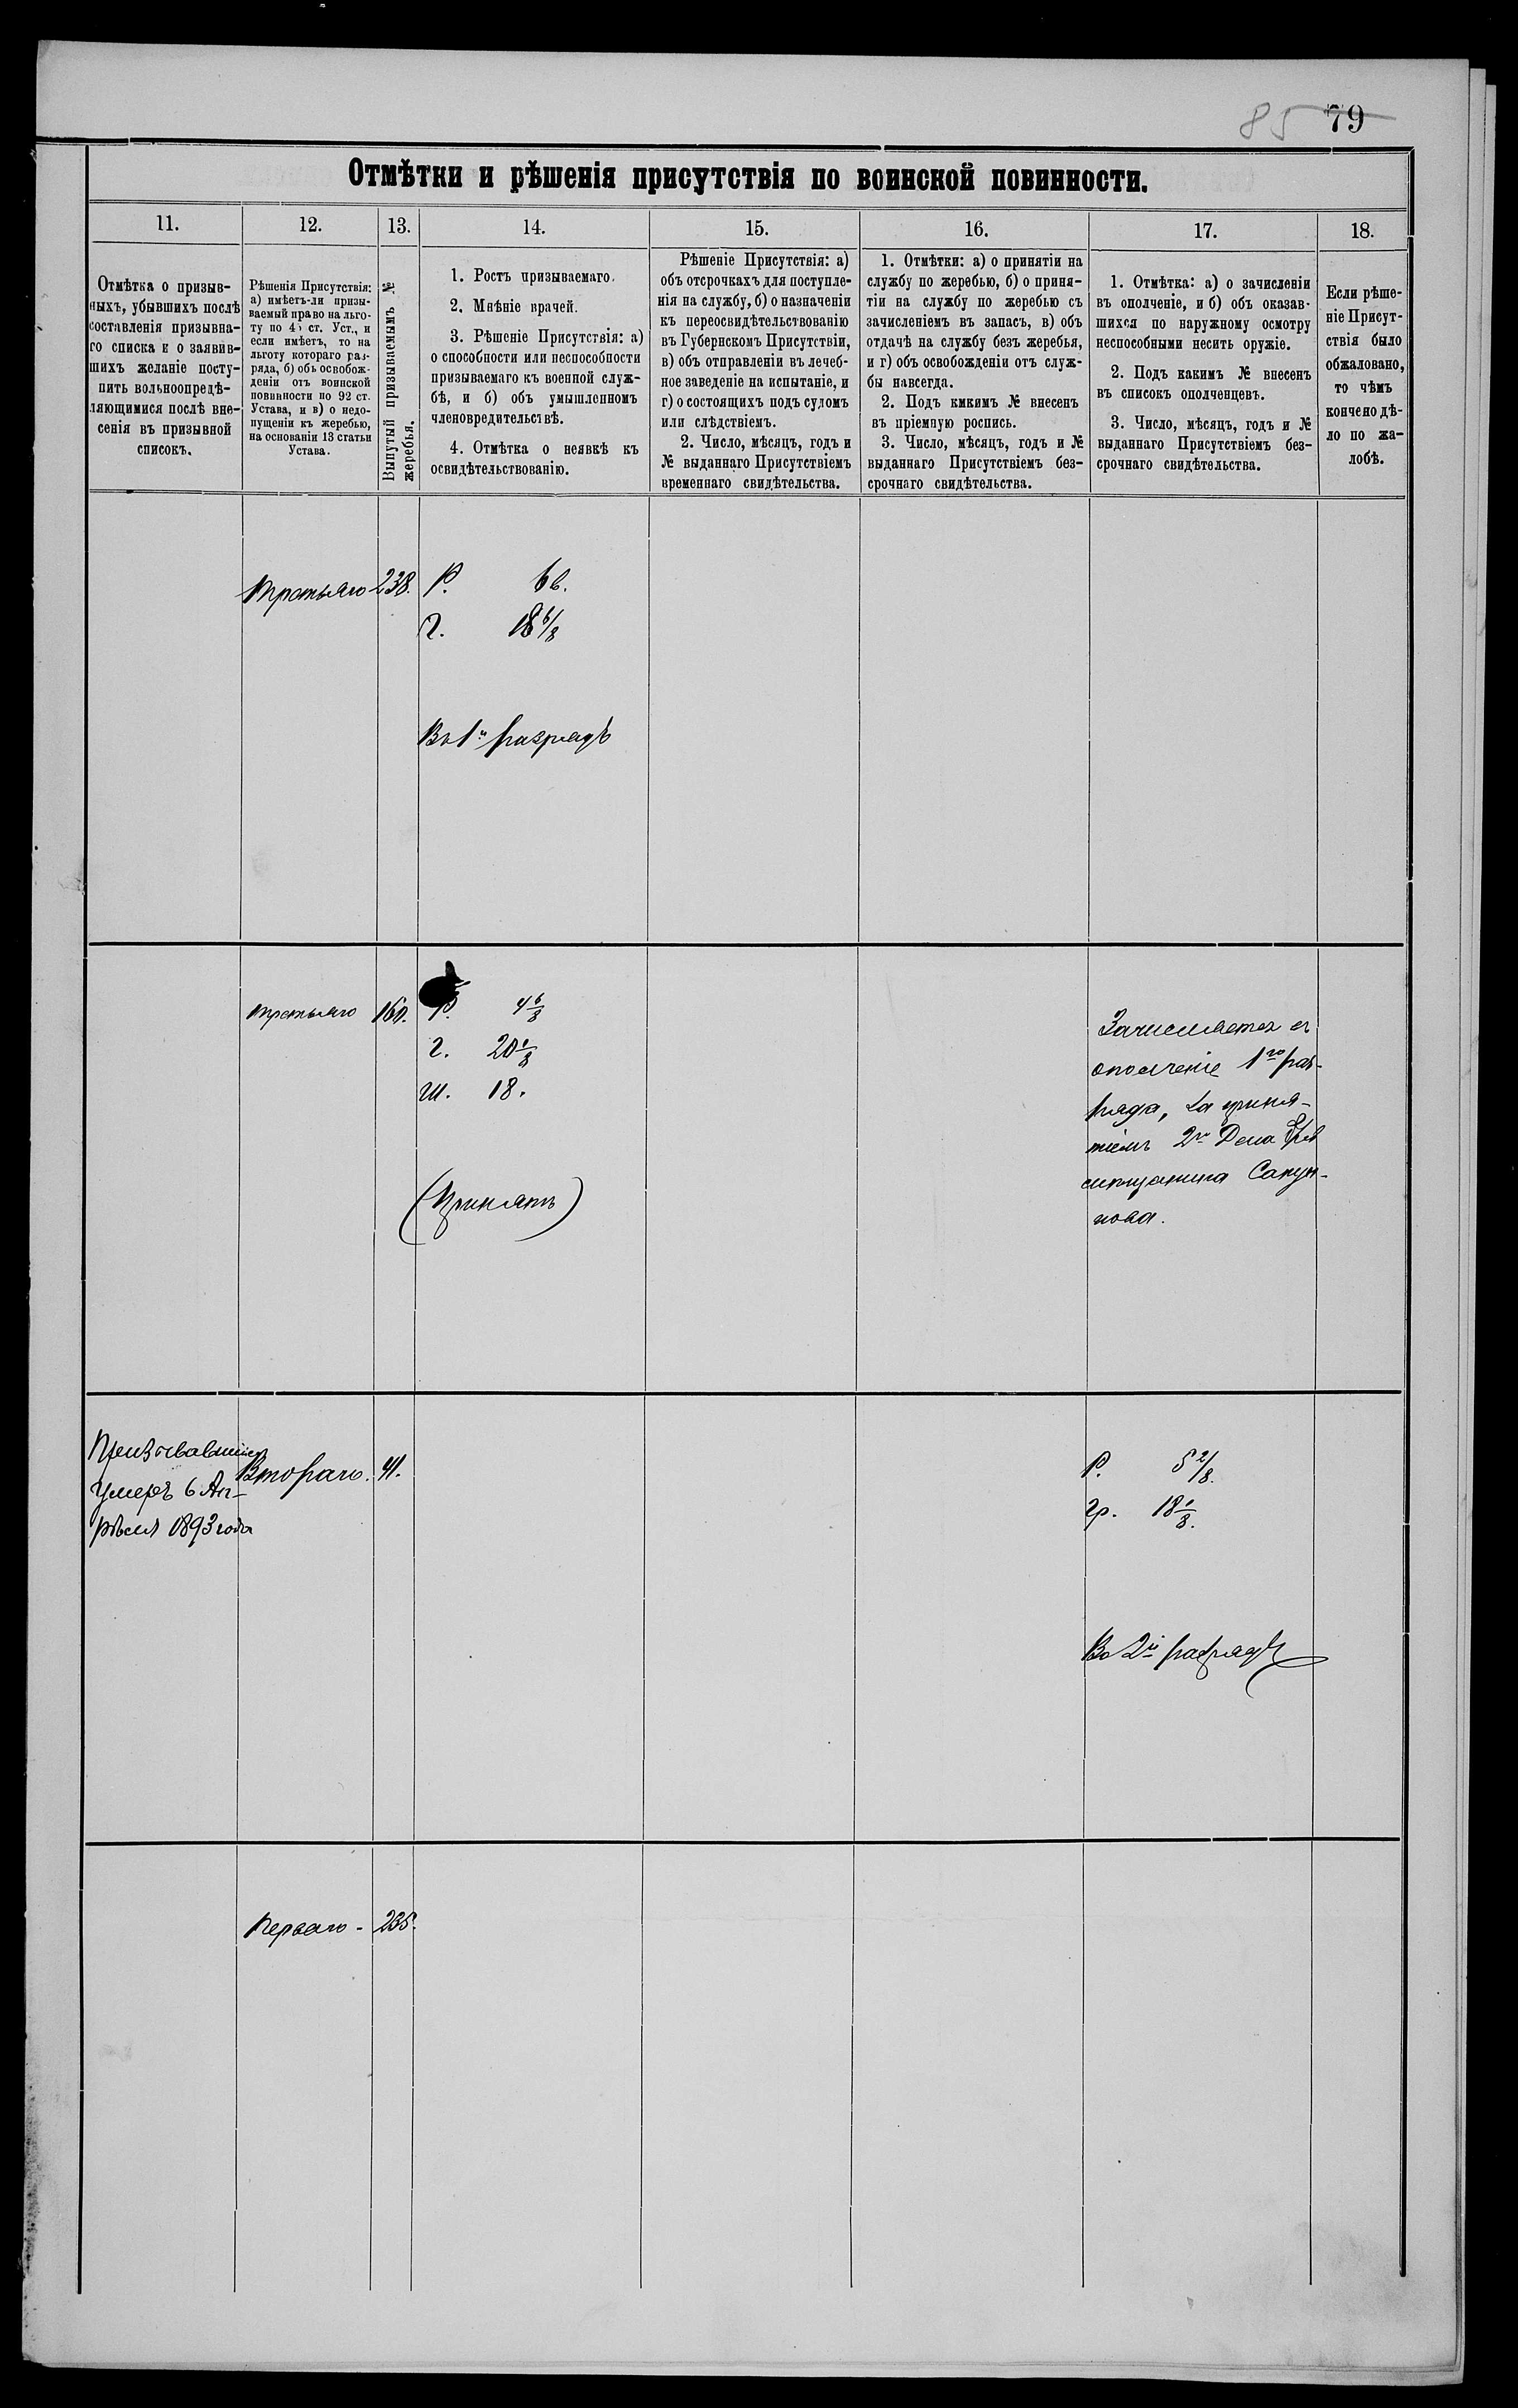 85 79
Отмѣтки и рѣшенія присутствія по воинской повинности.
11.
12.
13.
14.
15.
16.
17.
18.
Отмѣтка о призыв-
ныхъ, убывшихъ послѣ
составленія призывна-
го списка и о заявив-
шихъ желаніе посту-
пить вольноопредѣ-
ляющимися послѣ вне-
сенія въ призывной
списокъ.
Рѣшенія Присутствія:
а) имѣетъ-ли призы-
ваемый право на льго-
ту по 45 ст. Уст., и
если имѣетъ, то на
льготу котораго раз-
ряда, б) объ освобож-
деніи отъ воинской
повинности по 92 ст.
Устава, и в) о недо-
пущеніи къ жеребью,
на основаніи 13 статьи
Устава.
Вынутый призываемымъ №
жеребья.
1. Ростъ призываемаго.
2. Мнѣніе врачей.
3. Рѣшеніе Присутствія: а)
о способности или неспособности
призываемаго къ военной служ-
бѣ, и б) объ умышленномъ
членовредительствѣ.
4. Отмѣтка о неявкѣ къ
освидѣтельствованію.
Рѣшеніе Присутствія: а)
объ отсрочкахъ для поступле-
нія на службу, б) о назначеніи
къ переосвидѣтельствованію
въ Губернскомъ Присутствіи,
в) объ отправленіи въ лечеб-
ное заведеніе на испытаніе, и
г) о состоящихъ подъ судомъ
или слѣдствіемъ.
2. Число, мѣсяцъ, годъ и
№ выданнаго Присутствіемъ
временнаго свидѣтельства.
1. Отмѣтки: а) о принятіи на
службу по жеребью, б) о приня-
тіи на службу по жеребью съ
зачисленіемъ въ запасъ, в) объ
отдачѣ на службу безъ жеребья,
и г) объ освобожденіи отъ служ-
бы навсегда.
2. Подъ кмкимъ № внесенъ
въ пріемную роспись.
3. Число, мѣсяцъ, годъ и №
выданнаго Присутствіемъ без-
срочнаго свидѣтельства.
1. Отмѣтка: а) о зачисленіи
въ ополченіе, и б) объ оказав-
шихся по наружному осмотру
неспособными носить оружіе.
2. Подъ какимъ № внесенъ
въ списокъ ополченцевъ.
3. Число, мѣсяцъ, годъ и №
выданнаго Присутствіемъ без-
срочнаго свидѣтельства.
Если рѣше-
ніе Присут-
ствія было
обжаловано,
то чѣмъ
кончено дѣ-
ло по жа-
лобѣ.
третьяго 238. Р. 6 в.
г. 18 6/8
Во 1й разрядъ
третьяго 160. Р. 4 6/8
г. 20 1/8
ш. 18.
(Принятъ)
Зачисляется въ
ополченіе 1го раз-
ряда, за приня-
тіемъ 2го
мѣщанина
нова.
Призывавшійся
умеръ 6 Ап-
рѣля 1893 года
Втораго. 41.
Р. 5 2/8.
гр. 18 1/8.
Во 2й разрядъ
перваго - 235.